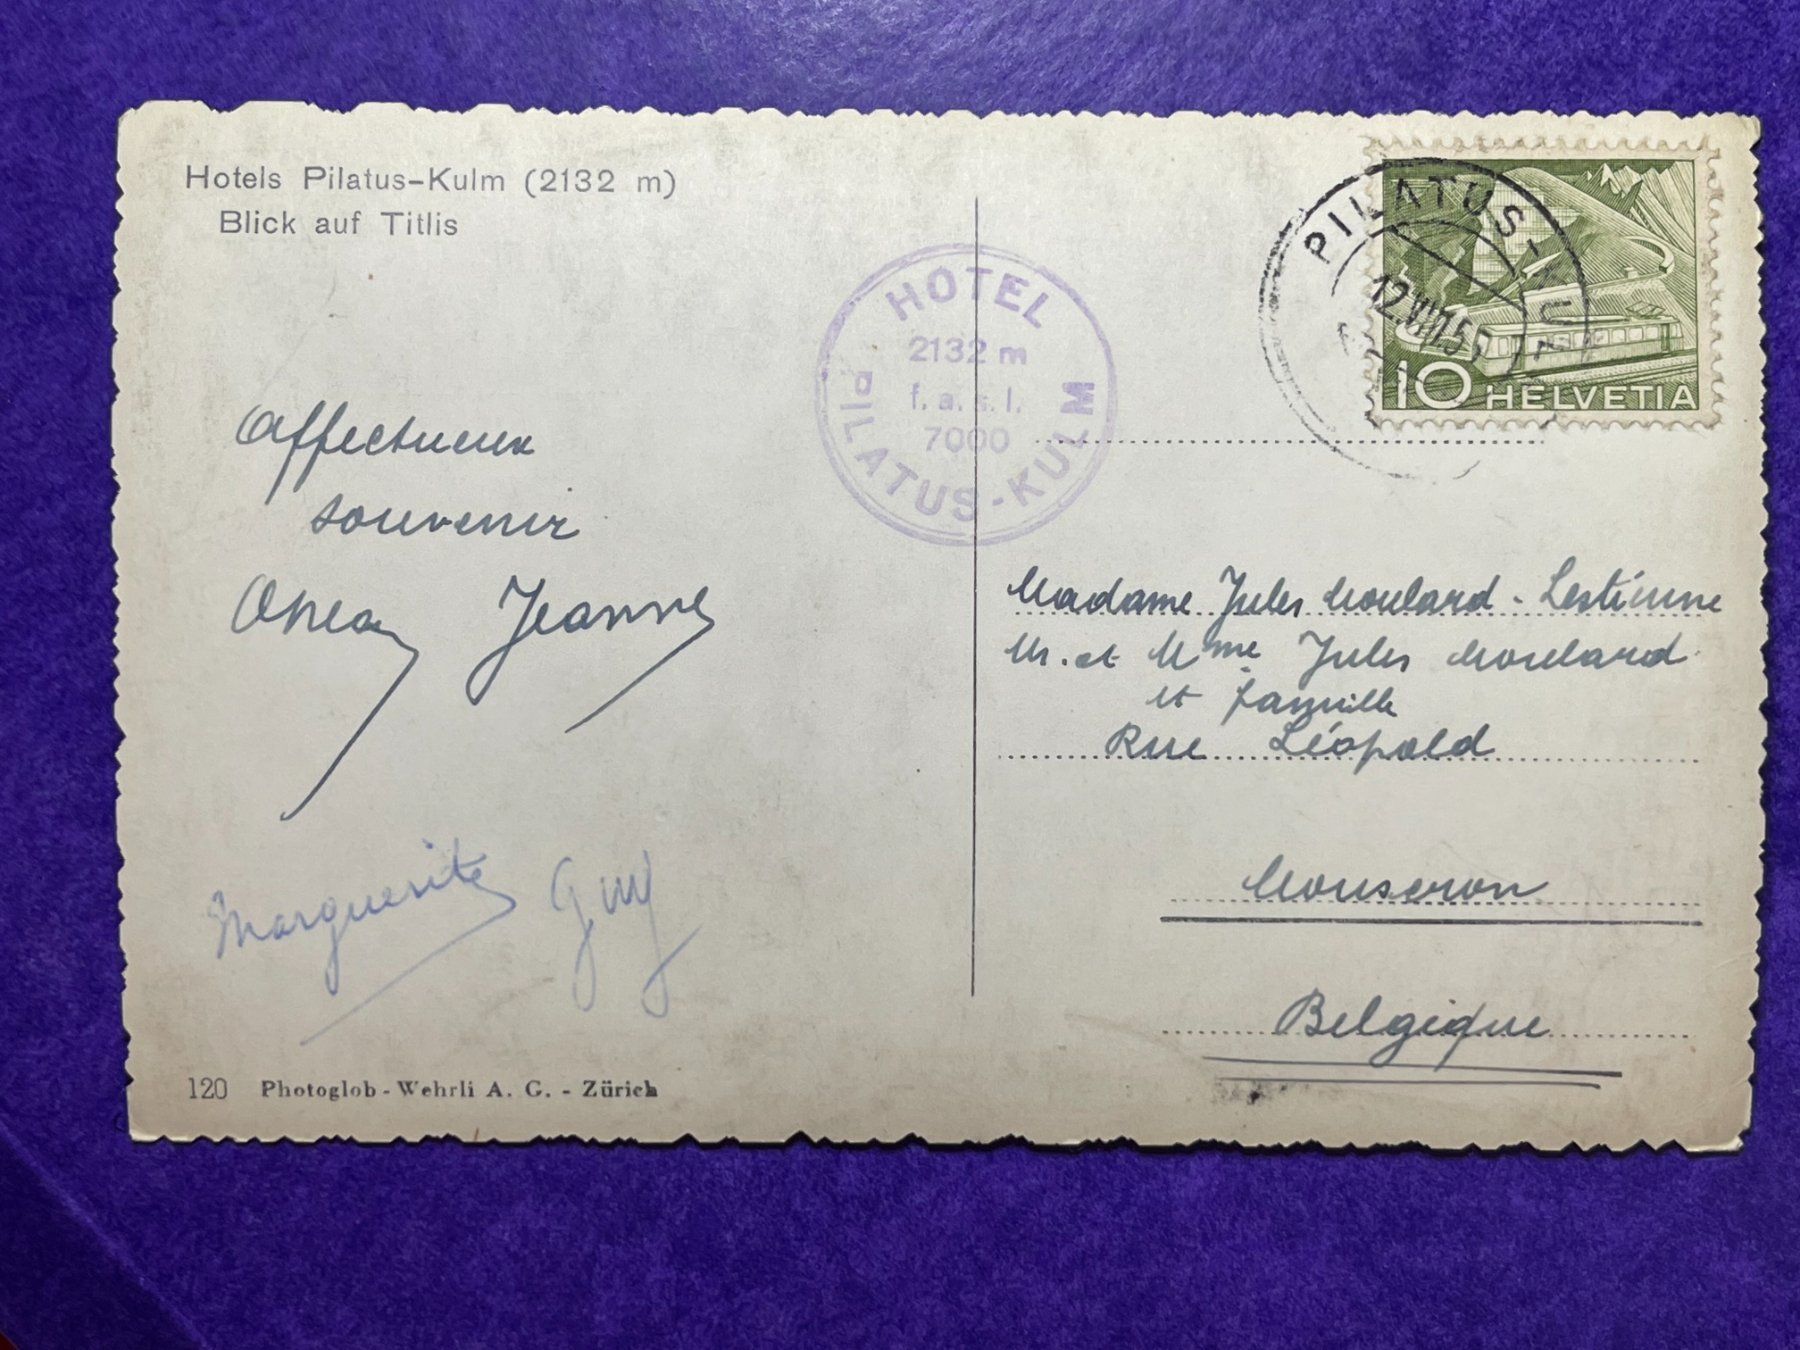 Hotels Pilatus-Kulm (2132 m)
Blick auf Titlis
HOTEL
2132 m
f. a. s. l.
7000
PILATUS-KULM
PILATUS-KULM
10 HELVETIA
Affectueux
souvenir
Jeanne
Marguerite Guy
Madame Jules Moulard - Lestienne
Mr. et Mme Jules Moulard
et famille
Rue Léopold
Mouscron
Belgique
120 Photoglob-Wehrli A. G. - Zürich